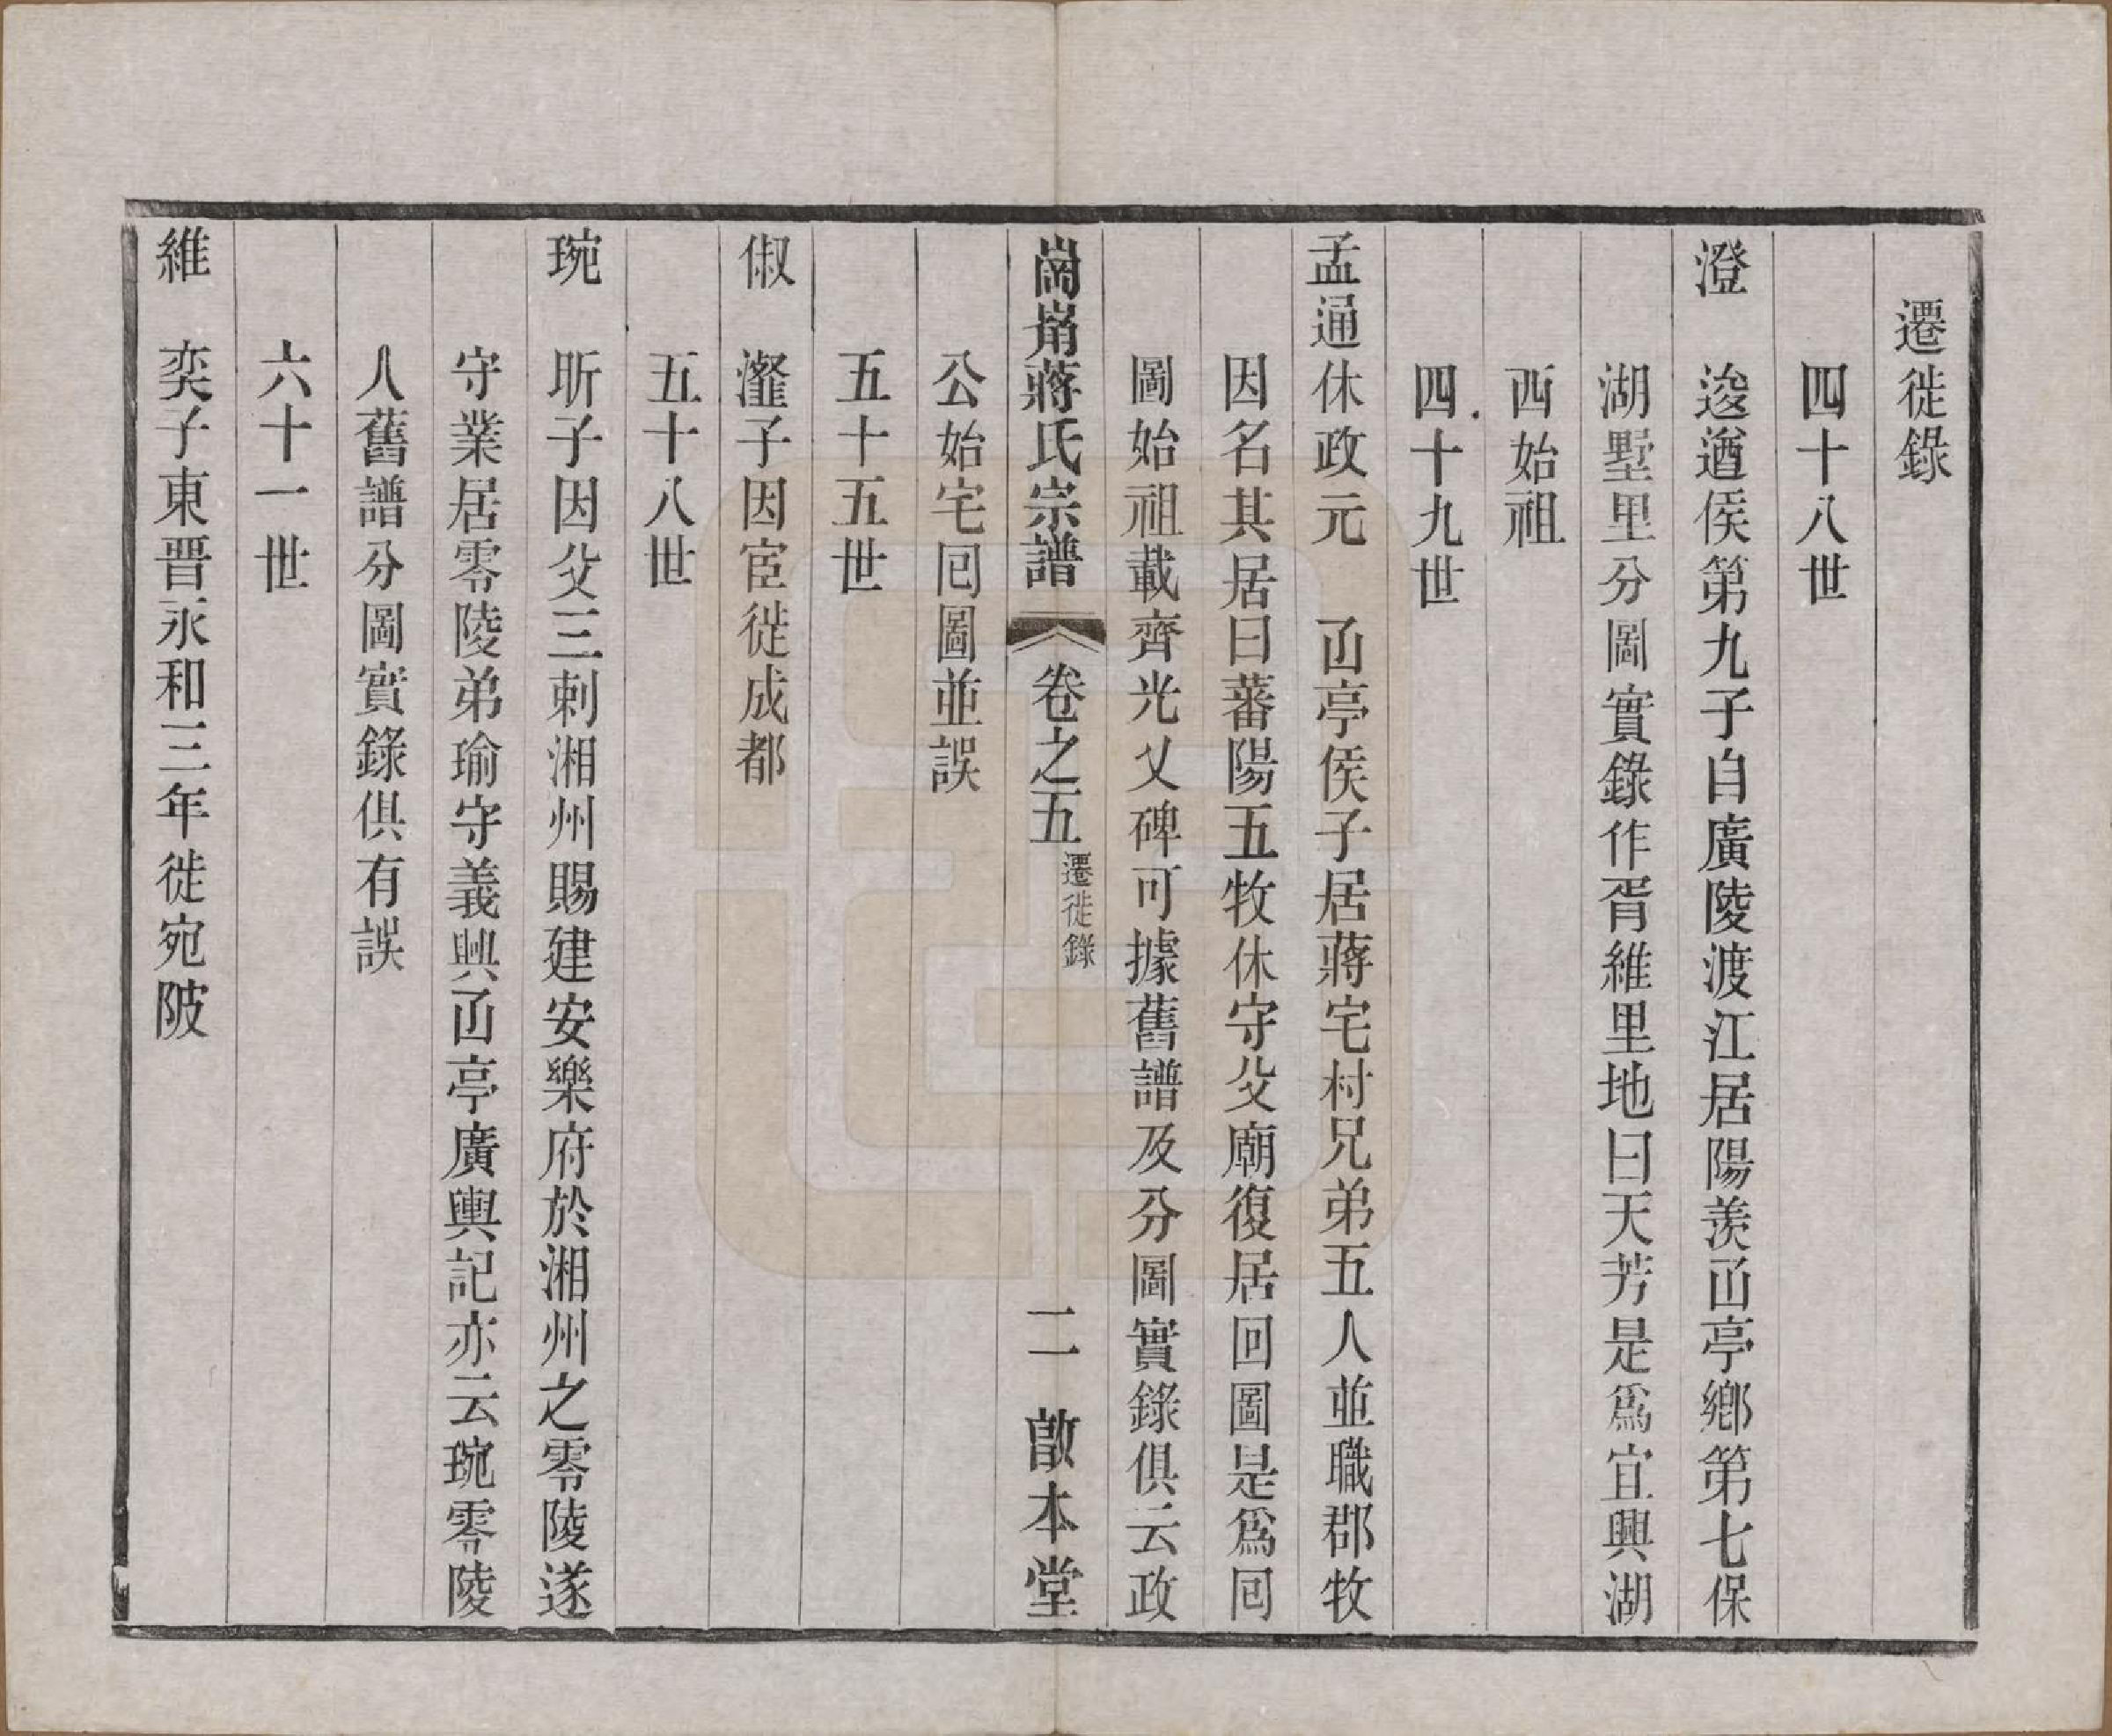 遷徙錄
四十八世
澄 逡遒侯第九子自廣陵渡江居陽羨㞾亭鄉第七保
湖墅里分圖實錄作胥維里地曰天芳是爲宜興湖
西始祖
四十九世
孟通休政元 㞾亭侯子居蔣宅村兄弟五人並職郡牧
因名其居曰蕃陽五牧休守父廟復居回圖是爲囘
圖始祖載齊光乂碑可據舊譜及分圖實錄俱云政
崗角蔣氏宗譜 卷之五 遷徙錄 二 啟本堂
公始宅囘圖並誤
五十五世
俶 灌子因宦徙成都
五十八世
琬 昕子因父三刺湘州賜建安樂府於湘州之零陵遂
守業居零陵弟瑜守義興㞾亭廣輿記亦云琬零陵
人舊譜分圖實錄俱有誤
六十一世
維 奕子東晋永和三年徙宛陂